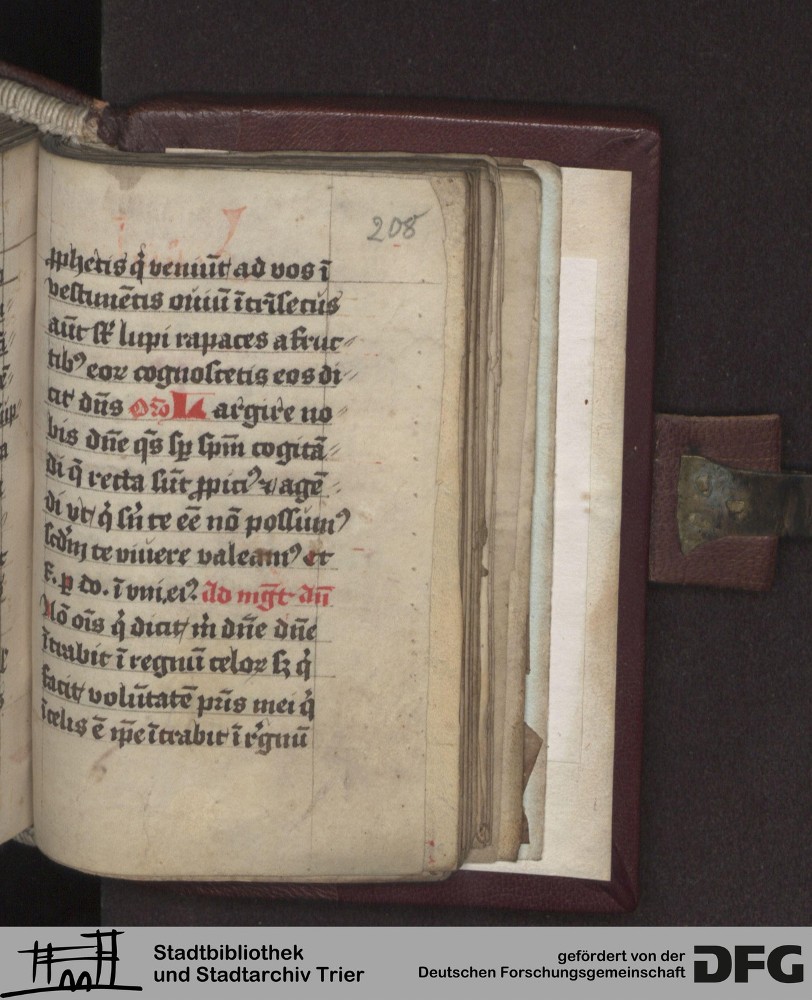 208
ꝓphetis q̇ veniūt ad vos ī
vestimētis ouiū ītrīsecus
aūt sūt lupi rapaces a fruc〃
tibꝰ eoꝝ cognoscetis eos di〃
cit dn̄s Orō Largire no〃
bis dn̄e q̄s sꝑ spm̄ cogitā〃
di q̄ recta sūt ꝓpiciꝰ ⁊ agē〃
di vt q̇ sn̄ te eē nō possumꝰ
scd'm te viuere valeamꝰ et
ꝑ do. ī vni. eiꝰ. Ad mg̅t an̄
Nō oīs q̇ dicit m̄ dn̄e dn̄e
ītrabit ī regnū celoꝝ sꝫ q̇
facit volūtatē pr̄is mei q̇
ī celis ē ip̄e ītrabit ī rēgnū
Stadtbibliothek
und Stadtarchiv Trier
gefördert von der
Deutschen Forschungsgemeinschaft
DFG